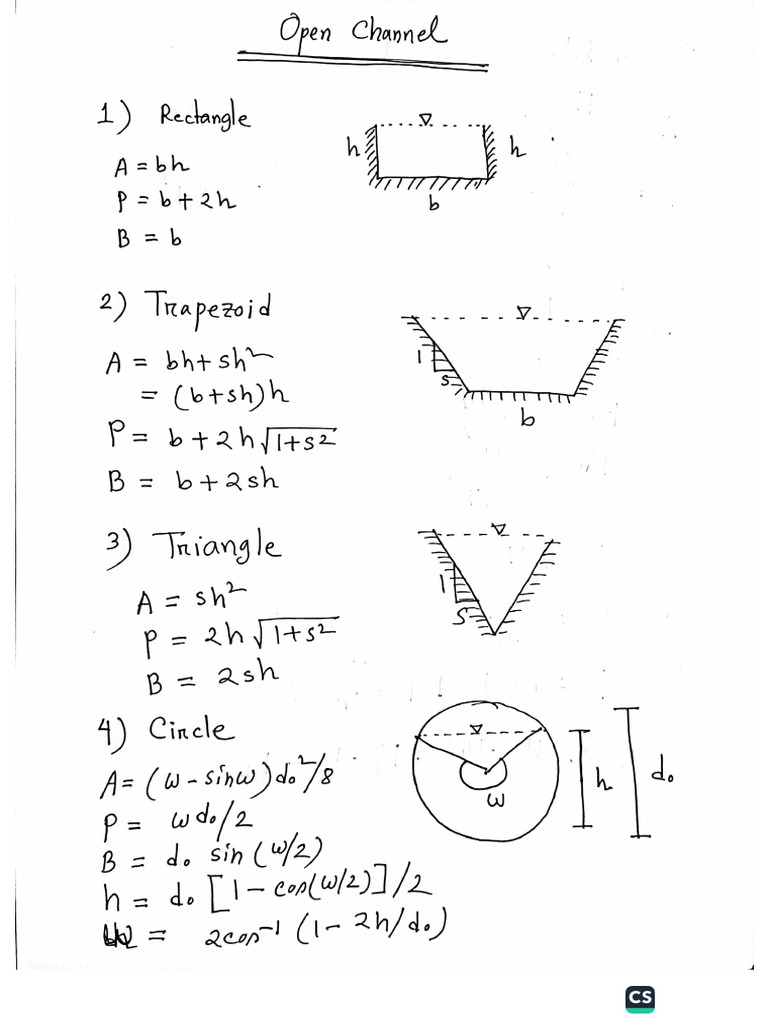 Open Channel
1) Rectangle
A = bh
P = b + 2h
B = b
h
h
b
2) Trapezoid
A = bh + sh²
= (b + sh)h
P = b + 2h√1+s²
B = b + 2sh
1
s
b
3) Triangle
A = sh²
P = 2h√1+s²
B = 2sh
1
S
4) Circle
A = (ω - sinω)d₀²/8
P = ωd₀/2
B = d₀ sin(ω/2)
h = d₀[1 - cos(ω/2)]/2
= 2cos⁻¹(1 - 2h/d₀)
ω
h
d₀
CS